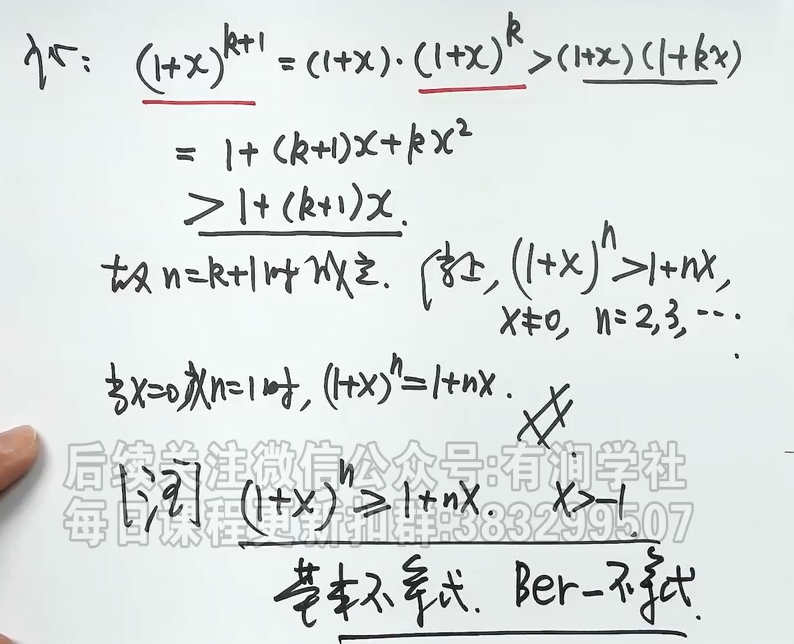 (1+x)^{k+1} = (1+x)·(1+x)^k > (1+x)(1+kx)
= 1+(k+1)x+kx²
> 1+(k+1)x.
故 n=k+1时 成立. 综上, (1+x)^n > 1+nx,
x≠0, n=2,3,….
当x=0或n=1时, (1+x)^n = 1+nx.
后续关注微信公众号:有润学社
[注] (1+x)^n ≥ 1+nx. x>-1.
每日课程更新扣群:383299507
基本不等式. Ber-不等式.